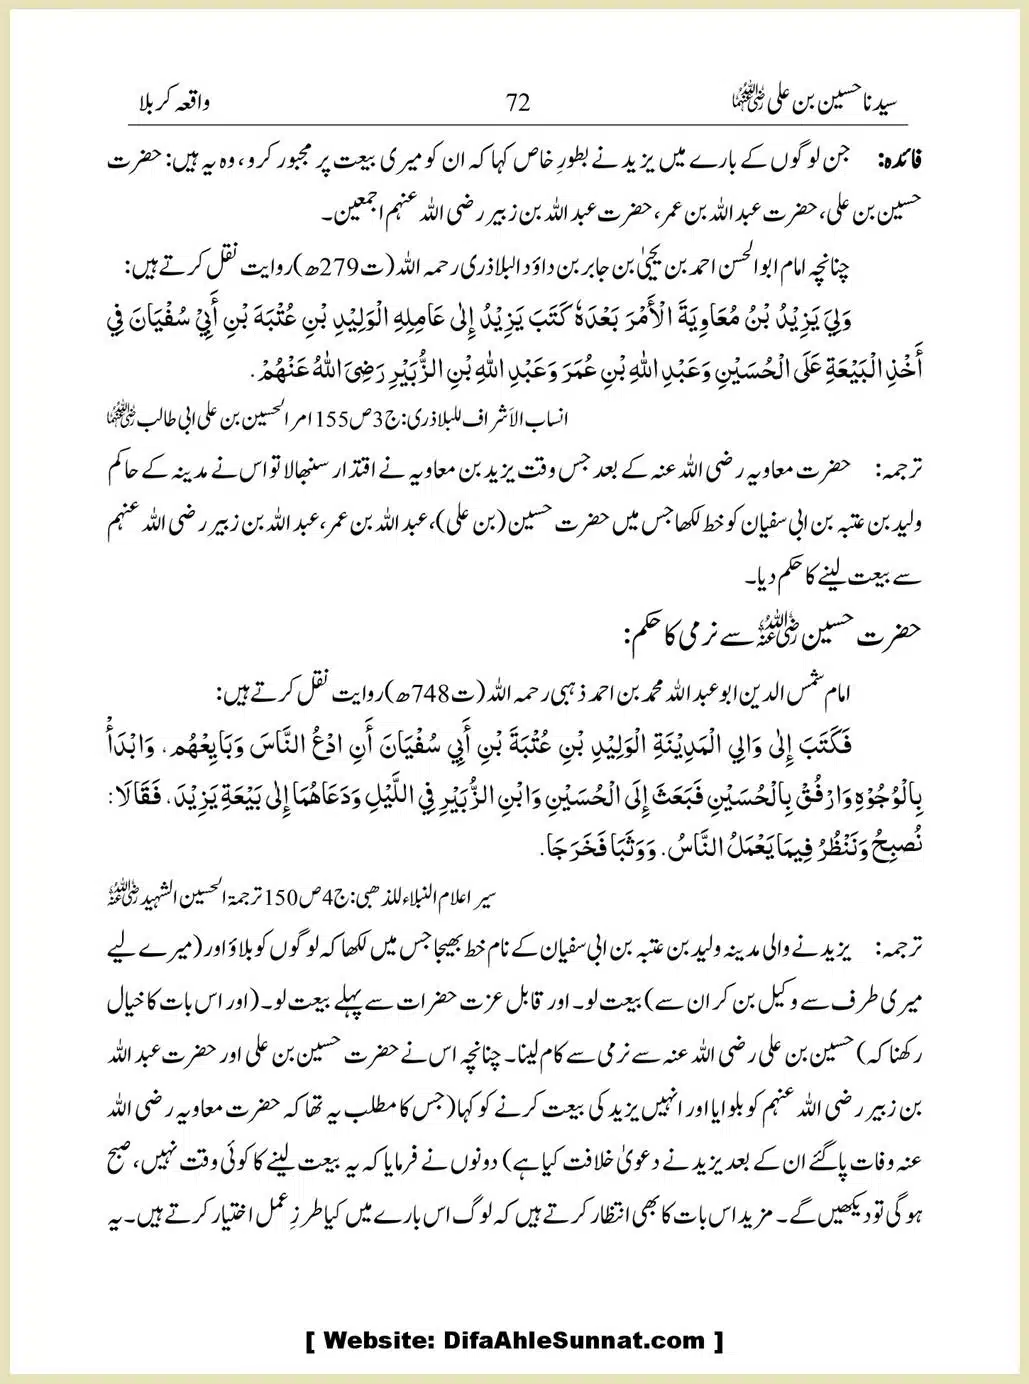 سیدنا حسین بن علی رضی اللہ عنہما 72 واقعہ کربلا
فائدہ: جن لوگوں کے بارے میں یزید نے بطورِ خاص کہا کہ ان کو میری بیعت پر مجبور کرو، وہ یہ ہیں: حضرت
حسین بن علی، حضرت عبد اللہ بن عمر، حضرت عبد اللہ بن زبیر رضی اللہ عنہم اجمعین۔
چنانچہ امام ابو الحسن احمد بن یحییٰ بن جابر بن داؤد البلاذری رحمہ اللہ (ت279ھ) روایت نقل کرتے ہیں:
وَلِيَ يَزِيْدُ بْنُ مُعَاوِيَةَ الْأَمْرَ بَعْدَهٗ كَتَبَ يَزِيْدُ إِلىٰ عَامِلِهِ الْوَلِيْدِ بْنِ عُتْبَةَ بْنِ أَبِيْ سُفْيَانَ فِي
أَخْذِ الْبَيْعَةِ عَلَى الْحُسَيْنِ وَعَبْدِ اللهِ بْنِ عُمَرَ وَعَبْدِ اللهِ بْنِ الزُّبَيْرِ رَضِيَ اللهُ عَنْهُمْ.
انساب الاَشراف للبلاذری: ج3 ص155 امر الحسین بن علی ابی طالب رضی اللہ عنہما
ترجمہ: حضرت معاویہ رضی اللہ عنہ کے بعد جس وقت یزید بن معاویہ نے اقتدار سنبھالا تو اس نے مدینہ کے حاکم
ولید بن عتبہ بن ابی سفیان کو خط لکھا جس میں حضرت حسین (بن علی)، عبد اللہ بن عمر، عبد اللہ بن زبیر رضی اللہ عنہم
سے بیعت لینے کا حکم دیا۔
حضرت حسین رضی اللہ عنہ سے نرمی کا حکم:
امام شمس الدین ابو عبد اللہ محمد بن احمد ذہبی رحمہ اللہ (ت748ھ) روایت نقل کرتے ہیں:
فَكَتَبَ إِلىٰ وَالِي الْمَدِيْنَةِ الْوَلِيْدِ بْنِ عُتْبَةَ بْنِ أَبِي سُفْيَانَ أَنِ ادْعُ النَّاسَ وَبَايِعْهُم، وَابْدَأْ
بِالْوُجُوْهِ وَارْفُقْ بِالْحُسَيْنِ فَبَعَثَ إِلَى الْحُسَيْنِ وَابْنِ الزُّبَيْرِ فِي اللَّيْلِ وَدَعَاهُمَا إِلىٰ بَيْعَةِ يَزِيْدَ، فَقَالَا:
نُصبِحُ وَنَنْظُرُ فِيمَا يَعْمَلُ النَّاسُ. وَوَثَبَا فَخَرَجَا.
سیر اعلام النبلاء للذھبی: ج4 ص150 ترجمۃ الحسین الشہید رضی اللہ عنہ
ترجمہ: یزید نے والی مدینہ ولید بن عتبہ بن ابی سفیان کے نام خط بھیجا جس میں لکھا کہ لوگوں کو بلاؤ اور (میرے لیے
میری طرف سے وکیل بن کر ان سے) بیعت لو۔ اور قابل عزت حضرات سے پہلے بیعت لو۔ (اور اس بات کا خیال
رکھنا کہ) حسین بن علی رضی اللہ عنہ سے نرمی سے کام لینا۔ چنانچہ اس نے حضرت حسین بن علی اور حضرت عبد اللہ
بن زبیر رضی اللہ عنہم کو بلوایا اور انہیں یزید کی بیعت کرنے کو کہا (جس کا مطلب یہ تھا کہ حضرت معاویہ رضی اللہ
عنہ وفات پا گئے ان کے بعد یزید نے دعویٰ خلافت کیا ہے) دونوں نے فرمایا کہ یہ بیعت لینے کا کوئی وقت نہیں، صبح
ہو گی تو دیکھیں گے۔ مزید اس بات کا بھی انتظار کرتے ہیں کہ لوگ اس بارے میں کیا طرزِ عمل اختیار کرتے ہیں۔ یہ
[ Website: DifaAhleSunnat.com ]